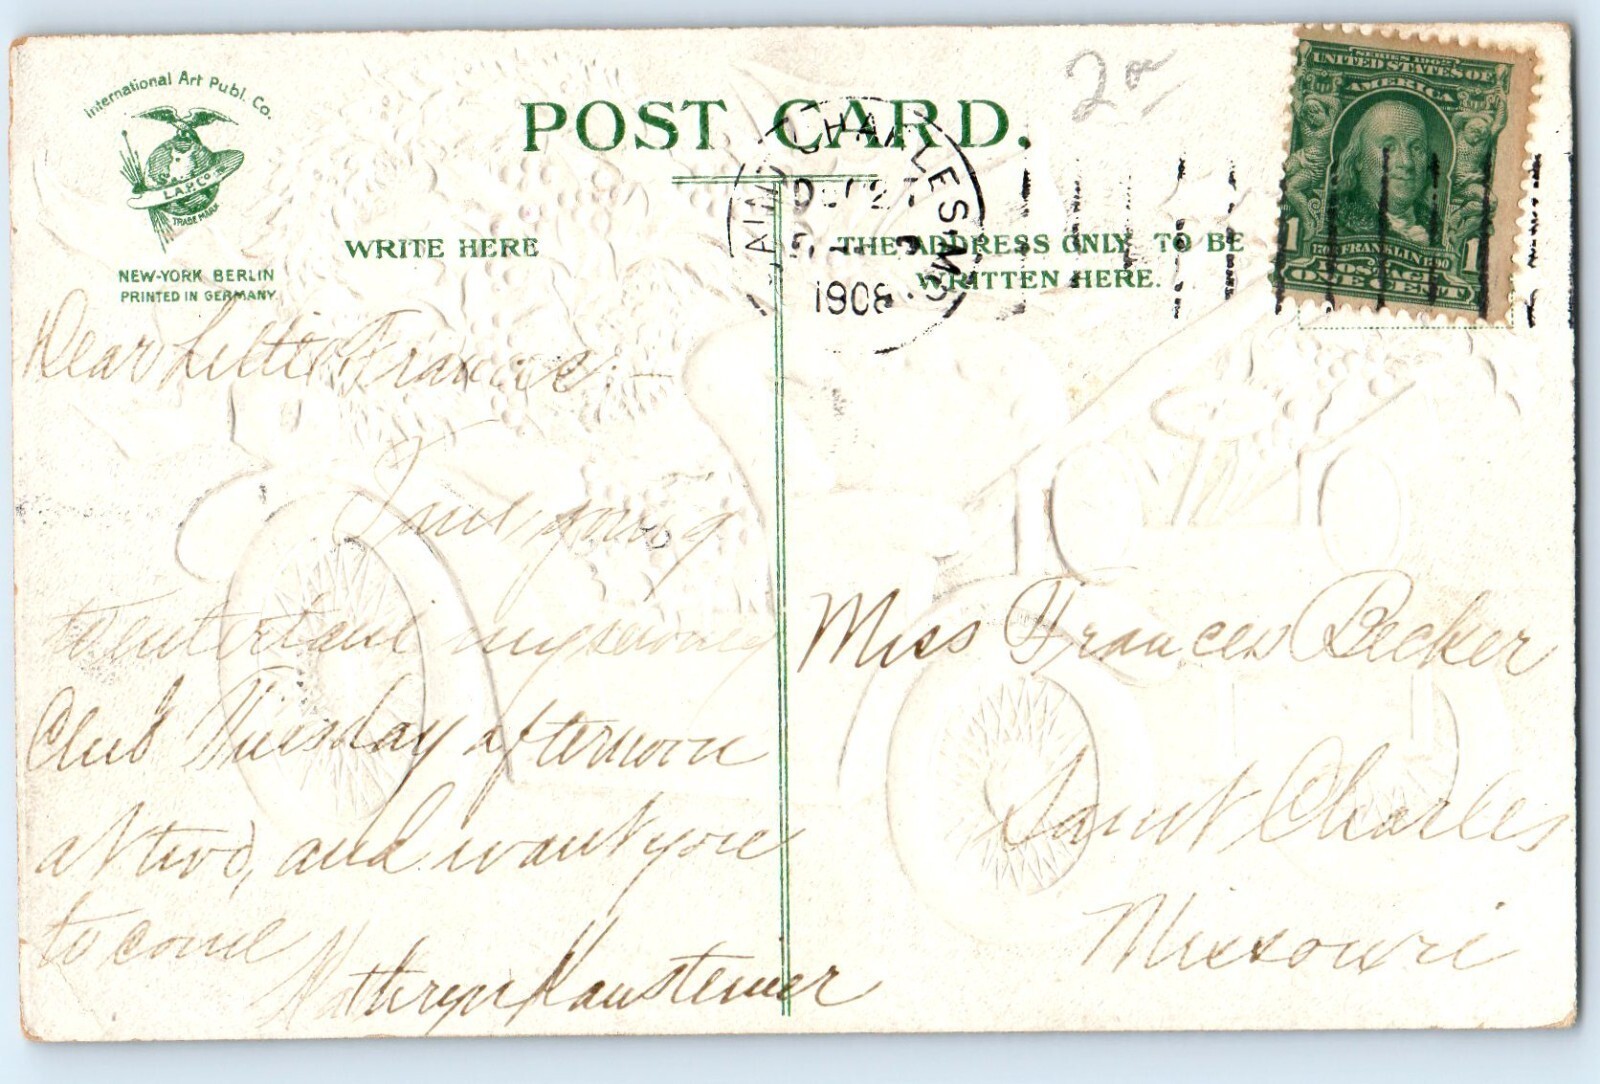 International Art Publ. Co.
I.A.P.Co.
TRADE MARK
NEW-YORK BERLIN
PRINTED IN GERMANY
POST CARD.
2
SERIES 1902
UNITED STATES OF
AMERICA
FRANKLIN
POSTAGE
1 1
ONE CENT
SAINT CHARLES, MO.
1908
WRITE HERE
THE ADDRESS ONLY TO BE
WRITTEN HERE.
Dear Little Frances:—
I am going
to entertain my sewing
Club Tuesday afternoon
at two, and want you
to come
Kathryn Hansteiner
Miss Frances Becker
Saint Charles
Missouri